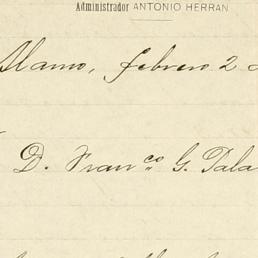 Administrador ANTONIO HERRAN
Alamo, febrero 2 d
D. Fran.co G. Pala